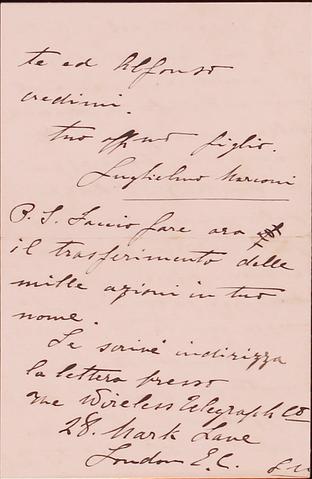 te ed Alfonso
credimi.
tuo affmo figlio.
Guglielmo Marconi
P. S. Faccio fare ora
il trasferimento delle
mille azioni in tuo
nome.
Se scrivi indirizza
la lettera presso
The Wireless Telegraph Co
28. Mark Lane
London E.C.